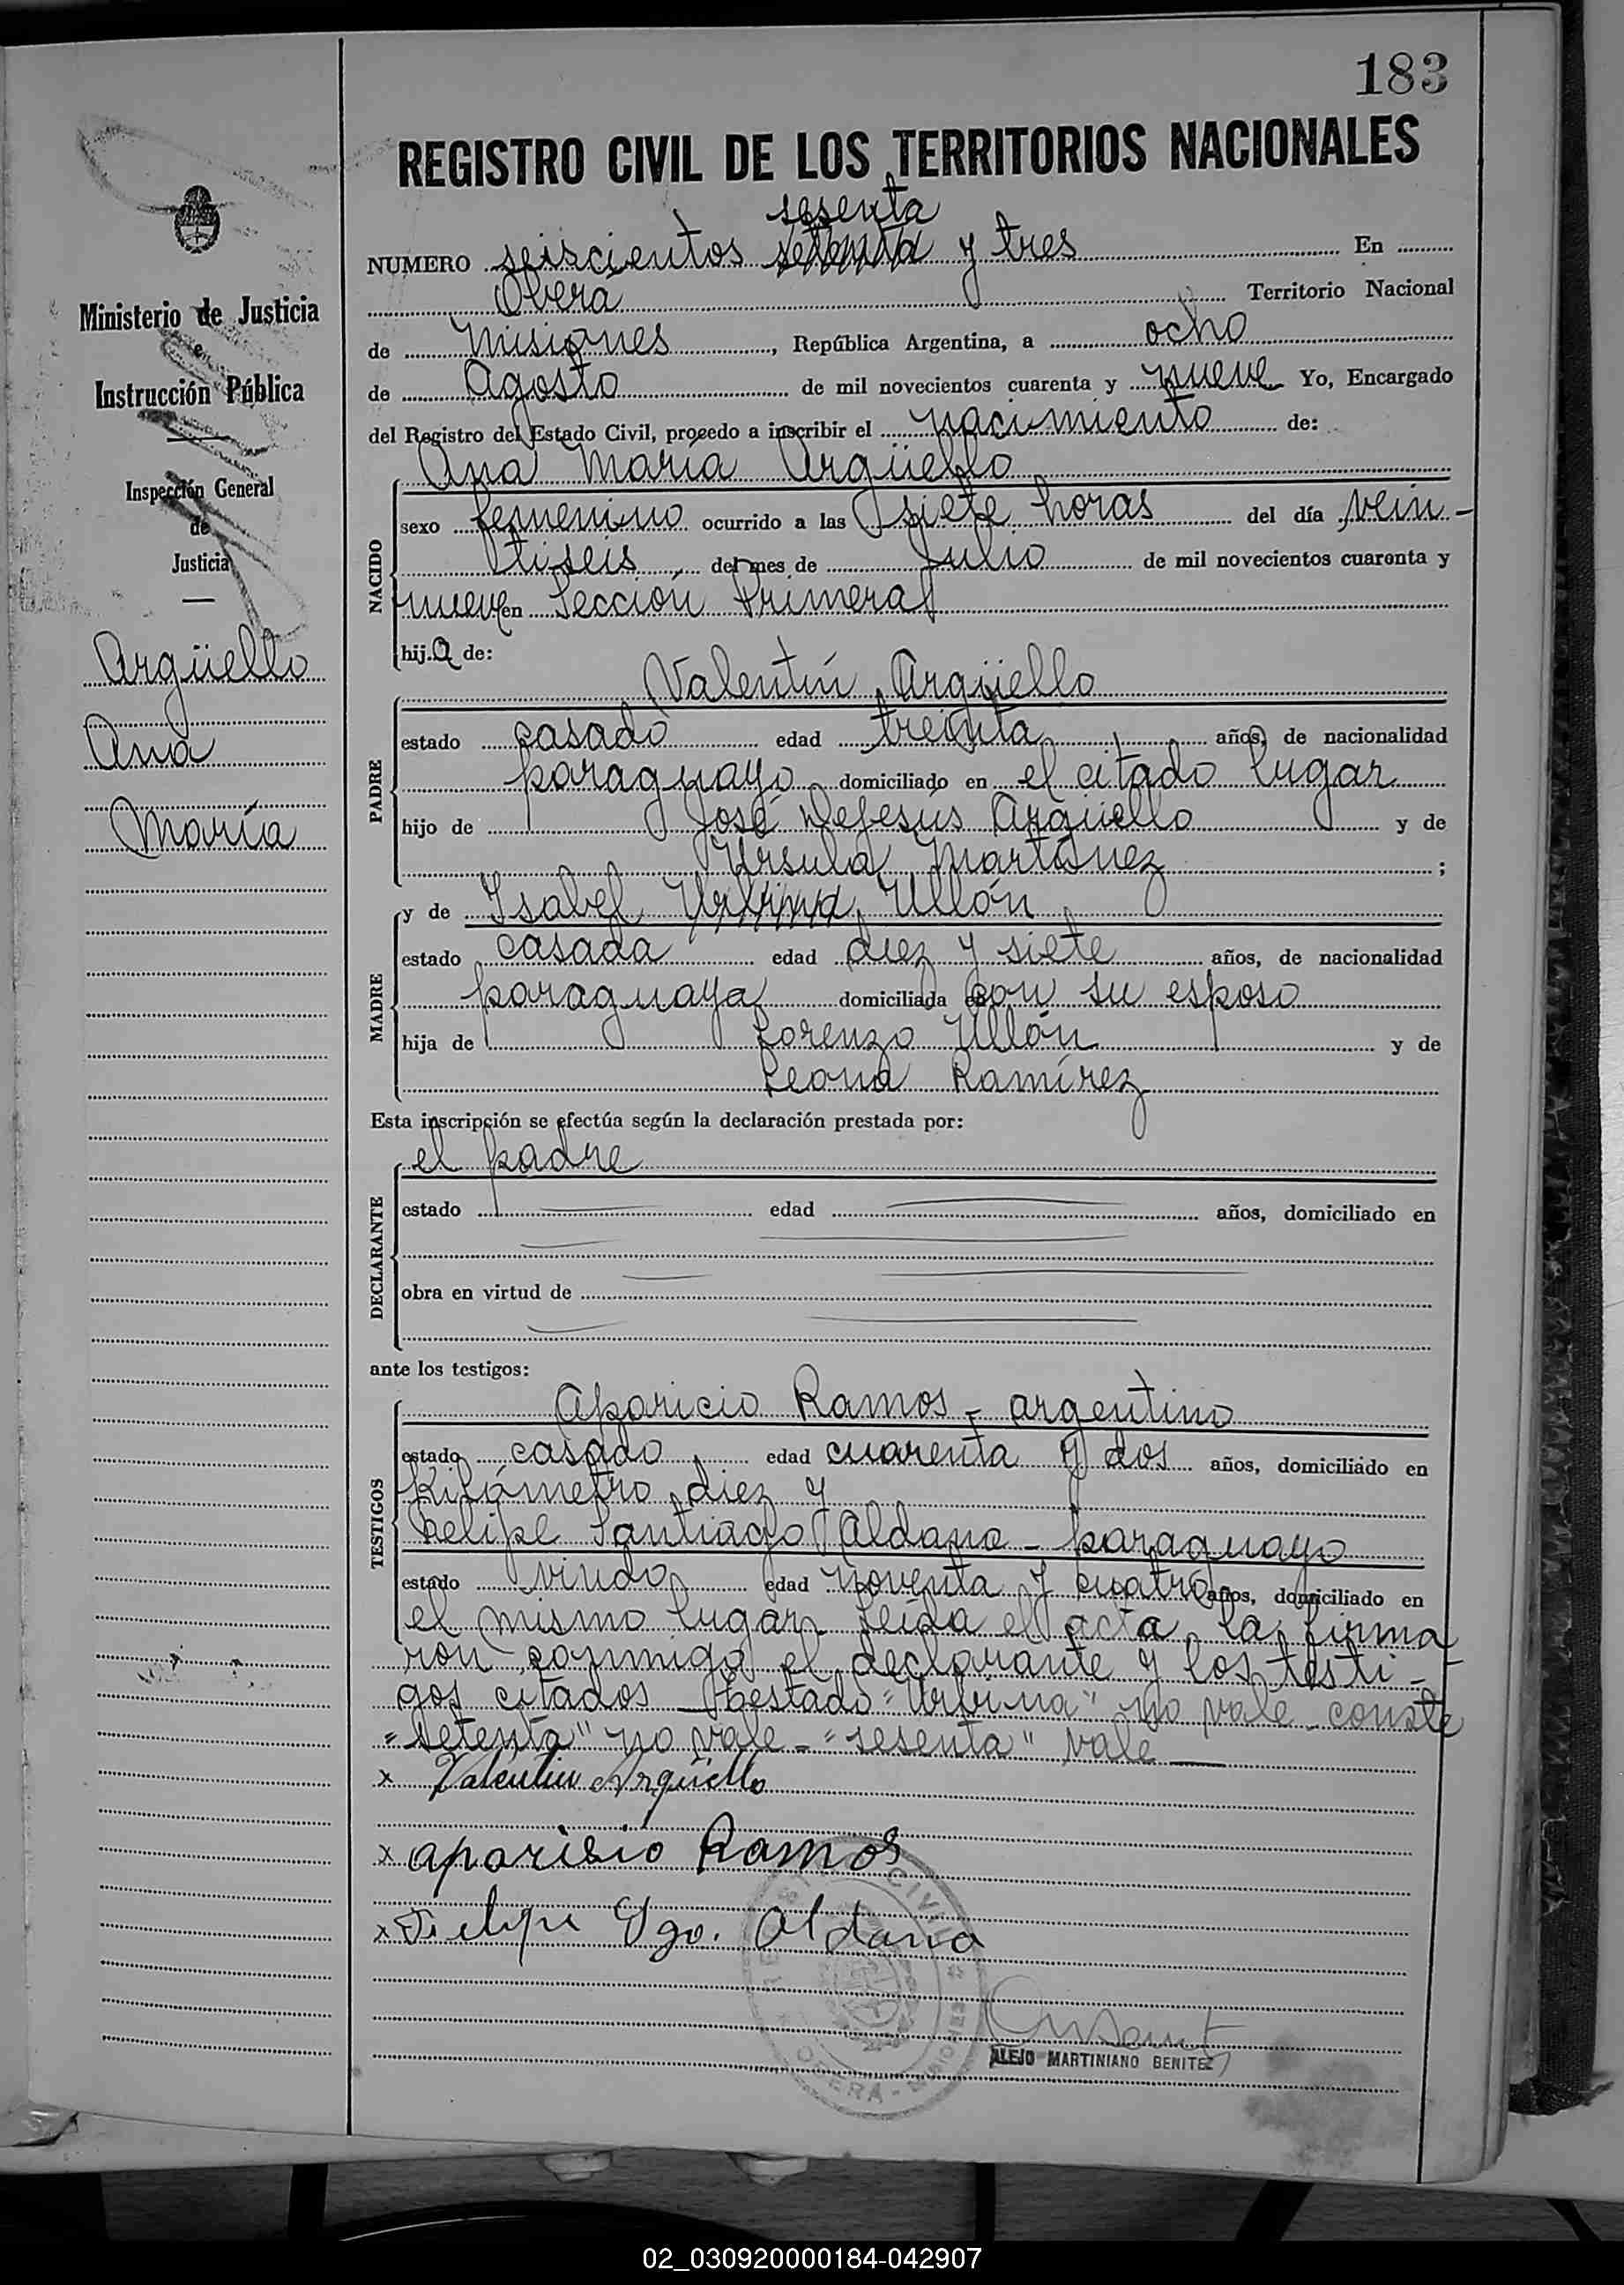 183
REGISTRO CIVIL DE LOS TERRITORIOS NACIONALES
sesenta
NUMERO seiscientos setenta y tres En
Oberá Territorio Nacional
de Misiones, República Argentina, a ocho
de Agosto de mil novecientos cuarenta y nueve Yo, Encargado
del Registro del Estado Civil, procedo a inscribir el nacimiento de:
Ana María Argüello
NACIDO
sexo femenino ocurrido a las siete horas del día vein-
tiseis del mes de Julio de mil novecientos cuarenta y
nueve en Sección Primera
hija de:
Valentín Argüello
PADRE
estado casado edad treinta años, de nacionalidad
paraguayo domiciliado en el citado lugar
hijo de José DeJesús Argüello y de
Ursula Martínez ;
MADRE
y de Ysabel Urbina Ullón
estado casada edad diez y siete años, de nacionalidad
paraguaya domiciliada con su esposo
hija de Lorenzo Ullón y de
Leona Ramírez
Esta inscripción se efectúa según la declaración prestada por:
el padre
DECLARANTE
estado edad años, domiciliado en
obra en virtud de
ante los testigos:
TESTIGOS
Aparicio Ramos - argentino
estado casado edad cuarenta y dos años, domiciliado en
Kilómetro diez y
Felipe Santiago Aldana - paraguayo
estado viudo edad noventa y cuatro años, domiciliado en
el mismo lugar Leída el acta la firma
ron conmigo el declarante y los testi-
gos citados - Testado "Urbina" no vale - conste
"setenta" no vale - "sesenta" vale
x Valentin Argüello
x aparisio Ramos
x Felipe Sgo. Aldana
REGISTRO CIVIL
OBERA - MISIONES
ALEJO MARTINIANO BENITEZ
Ministerio de Justicia
e
Instrucción Pública
Inspección General
de
Justicia
Argüello
Ana
María
02_030920000184-042907